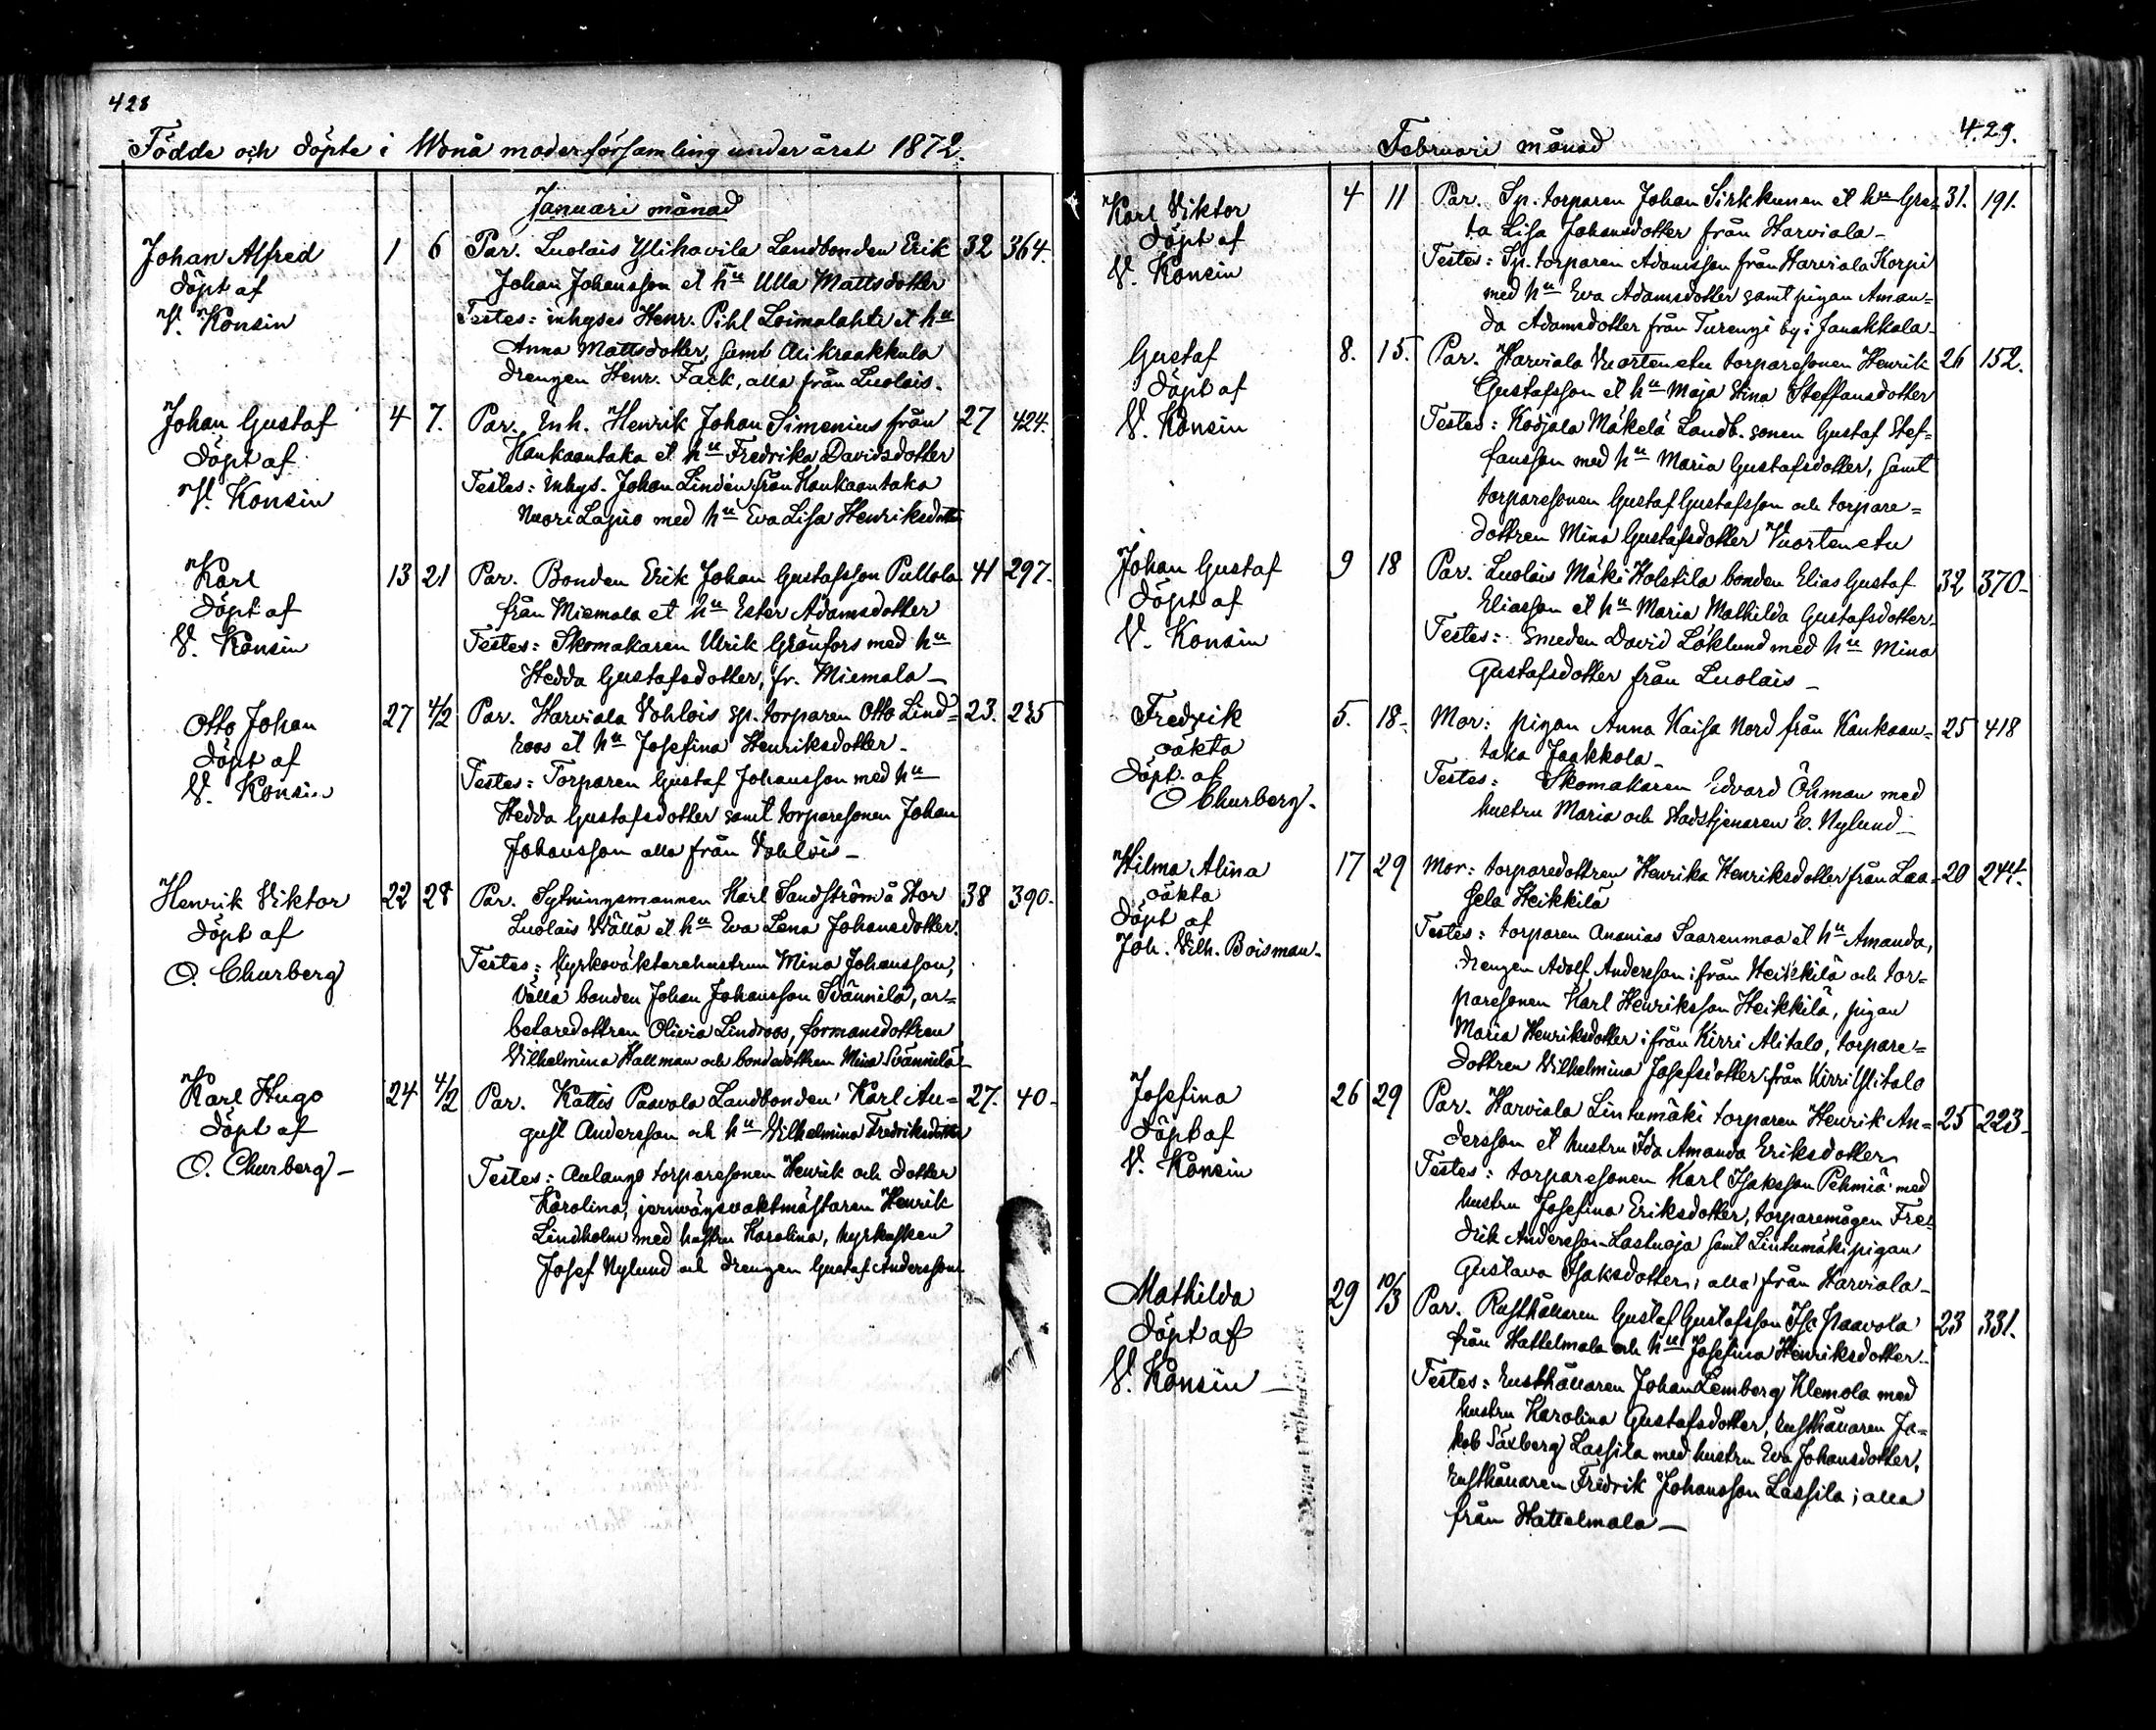 428
Födde och döpte i Wånå moderförsamling under året 1872.
Januari månad
Johan Alfred 1 6 Par. Luolais Ylihovila Landbonden Erik 32 364.
döpt af Johan Johansson et hu Ulla Mattsdotter
V. Konsin Testes: inhyses Henr. Pihl Loimalahti et hu
Anna Mattsdotter, samt Alikraakkula
drengen Henr. Fack, alla från Luolais.
Johan Gustaf 4 7. Par. Inh. Henrik Johan Simenius från 27 424.
döpt af Kankaantaka et hu Fredrika Davidsdotter
V. Konsin Testes: Inhys. Johan Lindén från Kankaantaka
Nuori Lapio med hu Eva Lisa Henriksdotter
Karl 13 21 Par. Bonden Erik Johan Gustafsson Pullola 41 297.
döpt af från Miemala et hu Ester Adamsdotter
V. Konsin Testes: Skomakaren Ulrik Grönfors med hu
Hedda Gustafsdotter, fr. Miemala
Otto Johan 27 4/2 Par. Harviala Vohlois sp. torparen Otto Lind= 23. 235
döpt af roos et hu Josefina Henriksdotter.
V. Konsin Testes: Torparen Gustaf Johansson med hu
Hedda Gustafsdotter samt torparesonen Johan
Johansson alla från Vohlois
Henrik Viktor 22 28 Par. Sytningsmannen Karl Sandström å Stor 38 390.
döpt af Luolais Wällä et hu Eva Lena Johansdotter.
O. Churberg Testes: Kyrkoväktarehustrun Mina Johansson,
Vällä bonden Johan Johansson Svännilä, ar=
betaredottren Olivia Lindroos, formansdottren
Vilhelmina Hallman och bondedottren Mina Svännilä
Karl Hugo 24 4/2 Par. Kattis Paavola Landbonden Karl Au= 27. 40
döpt af gust Andersson och hu Vilhelmina Fredriksdotter
O. Churberg Testes: Aulango torparesonen Henrik och dotter
Karolina, jernvägsvaktmästaren Henrik
Lindholm med hustru Karolina, hyrkusken
Josef Nylund och drengen Gustaf Andersson
429.
Februari månad
Karl Viktor 4 11 Par. Sp. torparen Johan Sirkkunen et hu Gre= 31. 191.
döpt af ta Lisa Johansdotter från Harviala
V. Konsin Testes: Sp. torparen Adamsson från Harviala Korpi
med hu Eva Adamsdotter samt pigan Aman=
da Adamsdotter från Turengi by i Janakkala
Gustaf 8. 15. Par. Harviala Vuortenetu torparesonen Henrik 26 152.
döpt af Gustafsson et hu Maja Stina Steffansdotter
V. Konsin Testes: Kodjala Mäkelä Landb. sonen Gustaf Stef=
fansson med hu Maria Gustafsdotter, samt
torparesonen Gustaf Gustafsson och torpare=
dottren Mina Gustafsdotter Vuortenetu
Johan Gustaf 9 18 Par. Luolais Mäki Holstila bonden Elias Gustaf 32 370
döpt af Eliasson et hu Maria Mathilda Gustafsdotter
V. Konsin Testes: Smeden David Löklund med hu Mina
Gustafsdotter från Luolais
Fredrik 5. 18 Mor: pigan Anna Kaisa Nord från Kankaan= 25 418
oäkta taka Jaakkola
döpt af Testes: Skomakaren Edvard Öhman med
O Churberg. hustru Maria och stadstjenaren E. Nylund
Hilma Alina 17 29 Mor: torparedottren Henrika Henriksdotter från Laa= 20 244.
oäkta sela Heikkilä
döpt af Testes: torparen Ananias Saarenmaa et hu Amanda,
Joh. Vilh. Boisman. drengen Adolf Andersson ifrån Heikkilä och tor=
paresonen Karl Henriksson Heikkilä, pigan
Maria Henriksdotter ifrån Kirri Alitalo, torpare=
dottren Vilhelmina Josefsdotter från Kirri Ylitalo
Josefina 26 29 Par. Harviala Lintumäki torparen Henrik An= 25 223
döpt af dersson et hustru Ida Amanda Eriksdotter
V. Konsin Testes: torparesonen Karl Isaksson Pehmiä med
hustru Josefina Eriksdotter, torparemågen Fre=
drik Andersson Lastuoja samt Lintumäki pigan
Gustava Isaksdotter; alla från Harviala
Mathilda 29 10/3 Par. Rusthållaren Gustaf Gustafsson Iso Paavola 23 331.
döpt af från Hattelmala och hu Josefina Henriksdotter
V. Konsin Testes: Rusthållaren Johan Lemberg Klemola med
hustru Karolina Gustafsdotter, rusthållaren Ja=
kob Saxberg Lassila med hustru Eva Johansdotter,
Rusthållaren Fredrik Johansson Lassila; alla
från Hattelmala